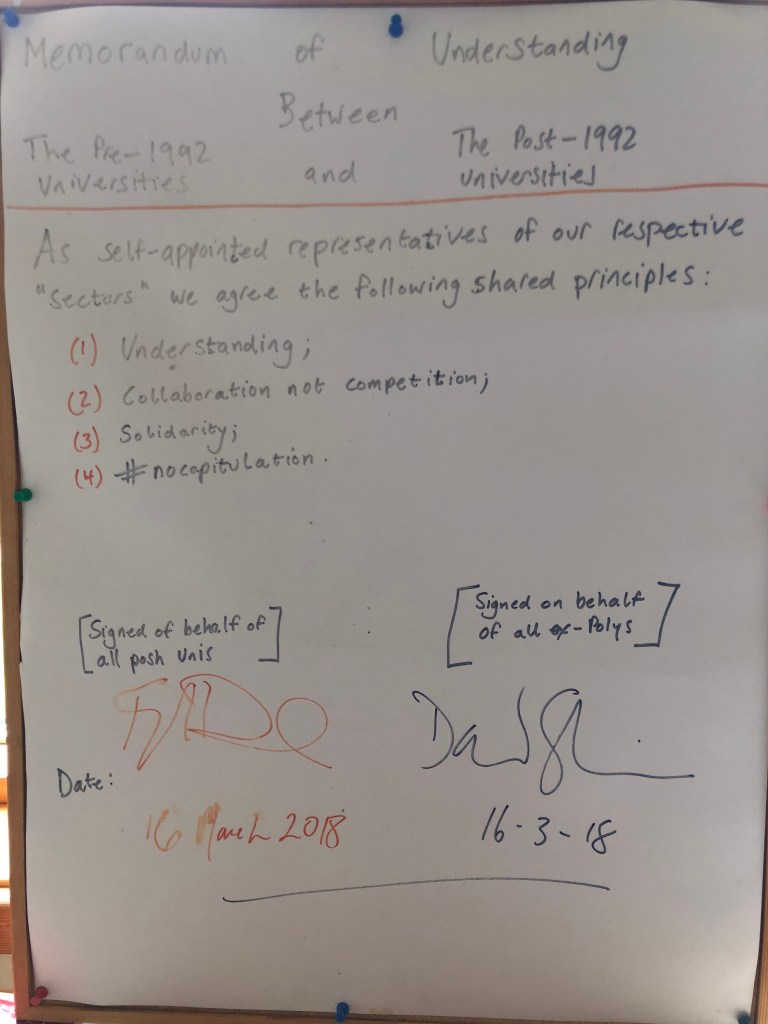 Memorandum of Understanding
Between
The Pre-1992 and The Post-1992
Universities universities
As self-appointed representatives of our respective
"Sectors" we agree the following shared principles:
(1) Understanding;
(2) Collaboration not competition;
(3) Solidarity;
(4) #nocapitulation.
[Signed of behalf of
all posh unis]
[Signed on behalf
of all ex-Polys]
Date:
16 March 2018
16-3-18